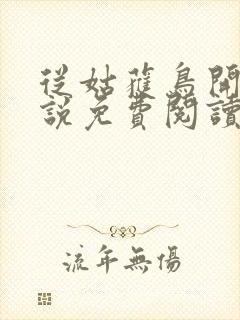 從姑蘿鳥開
說免費閱讀
流年無傷